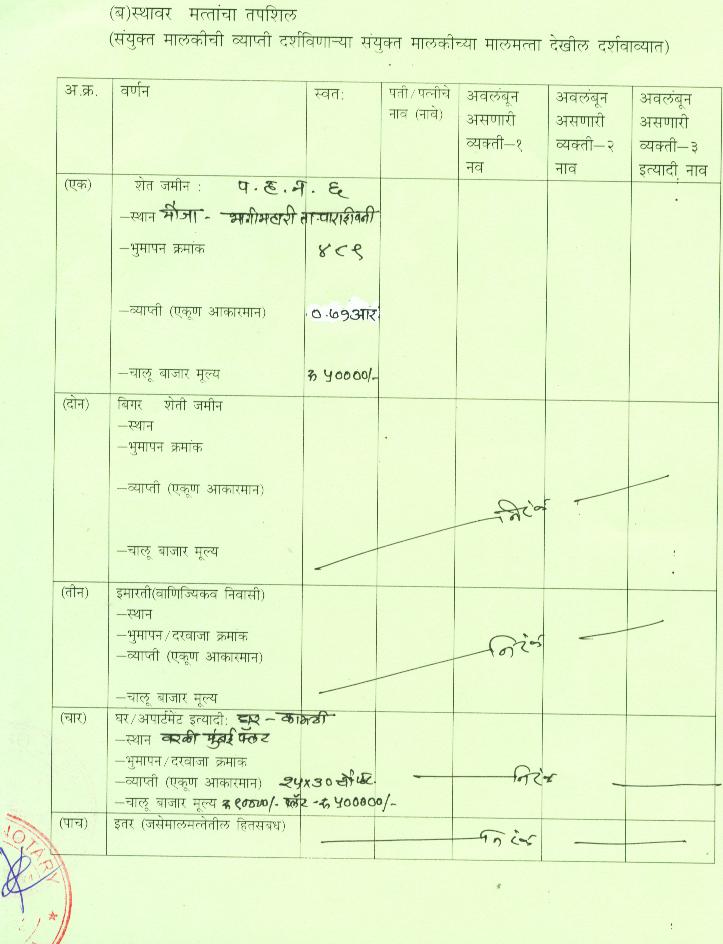 (ब)स्थावर मत्तांचा तपशिल
(संयुक्त मालकीची व्याप्ती दर्शविणाऱ्या संयुक्त मालकीच्या मालमत्ता देखील दर्शवाव्यात)
अ.क्र. वर्णन स्वत: पती/पत्नीचे नाव (नावे) अवलंबून असणारी व्यक्ती–१ नव अवलंबून असणारी व्यक्ती–२ नाव अवलंबून असणारी व्यक्ती–३ इत्यादी नाव
(एक) शेत जमीन : प. ह. न. ६
–स्थान मौजा - ता.पाराशिवनी
–भुमापन क्रमांक ४८९
–व्याप्ती (एकूण आकारमान) ०.७१आर
–चालू बाजार मूल्य रु ५००००/-
(दोन) बिगर शेती जमीन
–स्थान
–भुमापन क्रमांक
–व्याप्ती (एकूण आकारमान) निरंक
–चालू बाजार मूल्य
(तीन) इमारती(वाणिज्यिकव निवासी)
–स्थान
–भुमापन/दरवाजा क्रमांक निरंक
–व्याप्ती (एकूण आकारमान)
–चालू बाजार मूल्य
(चार) घर/अपार्टमेंट इत्यादी: घर – कामठी
–स्थान वरळी मुंबई फ्लॅट
–भुमापन/दरवाजा क्रमांक
–व्याप्ती (एकूण आकारमान) २५x३० निरंक
–चालू बाजार मूल्य फ्लॅट -रु ५०००००/-
(पाच) इतर (जसेमालमत्तेतील हितसबध) निरंक
NOTARY